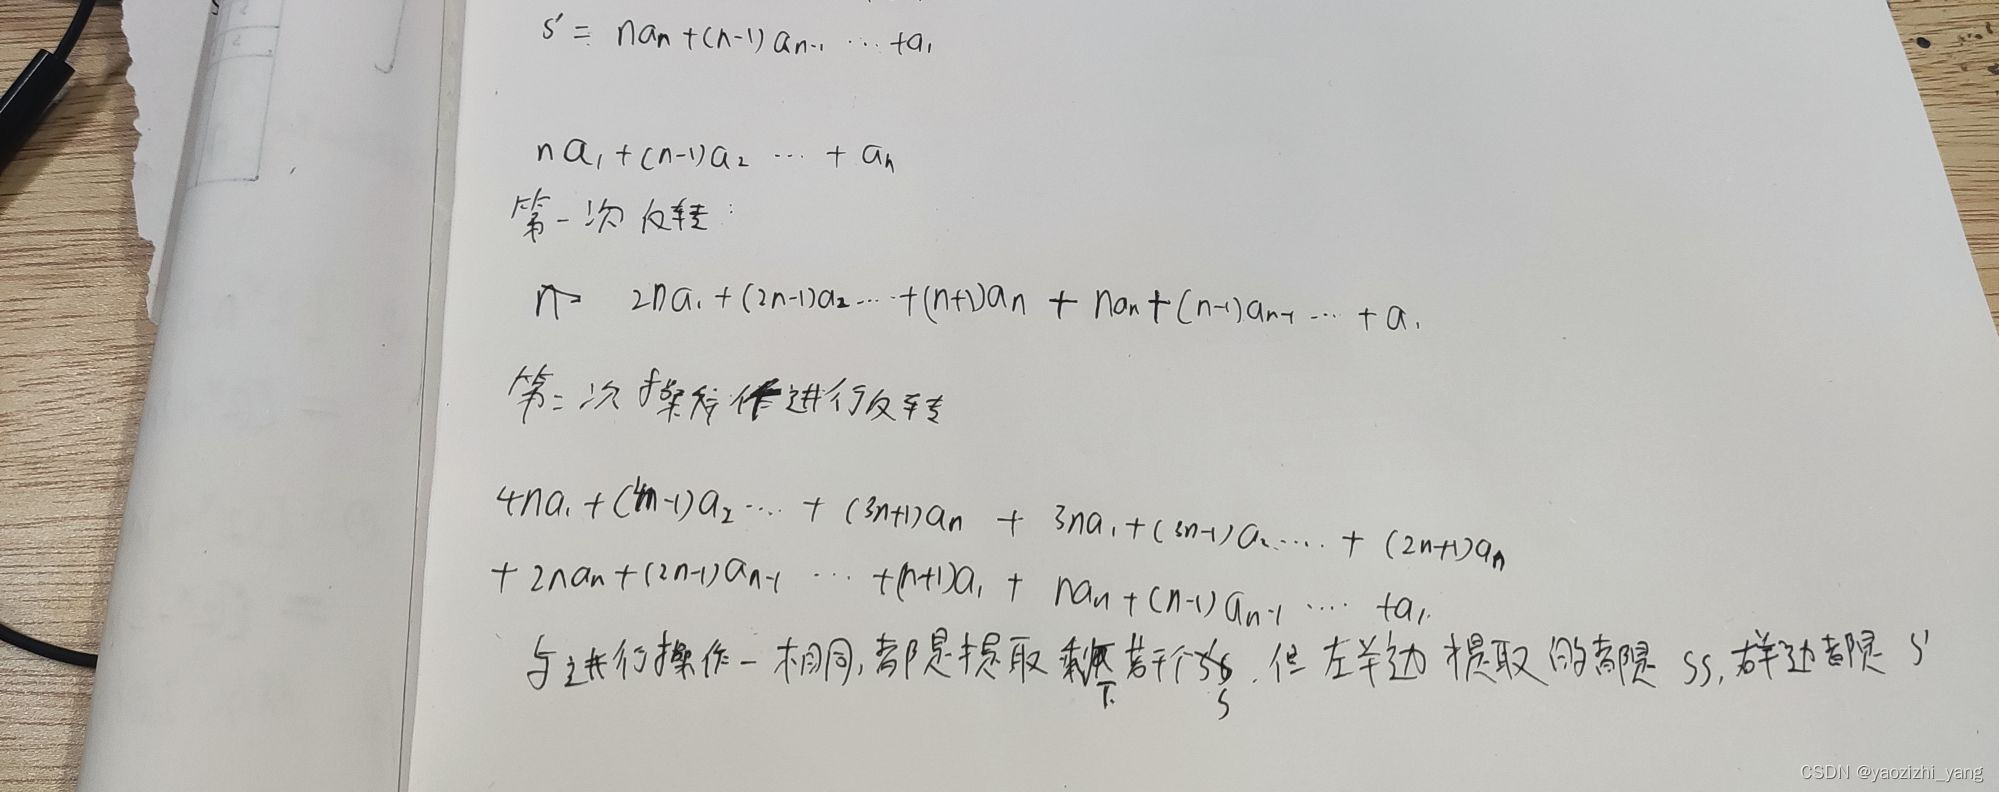 s' = naₙ + (n-1)aₙ₋₁ ··· + a₁
na₁ + (n-1)a₂ ··· + aₙ
第一次反转:
2na₁ + (2n-1)a₂ ··· + (n+1)aₙ + naₙ + (n-1)aₙ₋₁ ··· + a₁
第二次操作进行反转
4na₁ + (4n-1)a₂ ···· + (3n+1)aₙ + 3na₁ + (3n-1)a₂ ···· + (2n+1)aₙ
+ 2naₙ + (2n-1)aₙ₋₁ ··· + (n+1)a₁ + naₙ + (n-1)aₙ₋₁ ···· + a₁
与进行操作一相同,都是提取剩下若干个s,但左半边提取的都是ss,右半边都是s'
CSDN @yaozizhi_yang